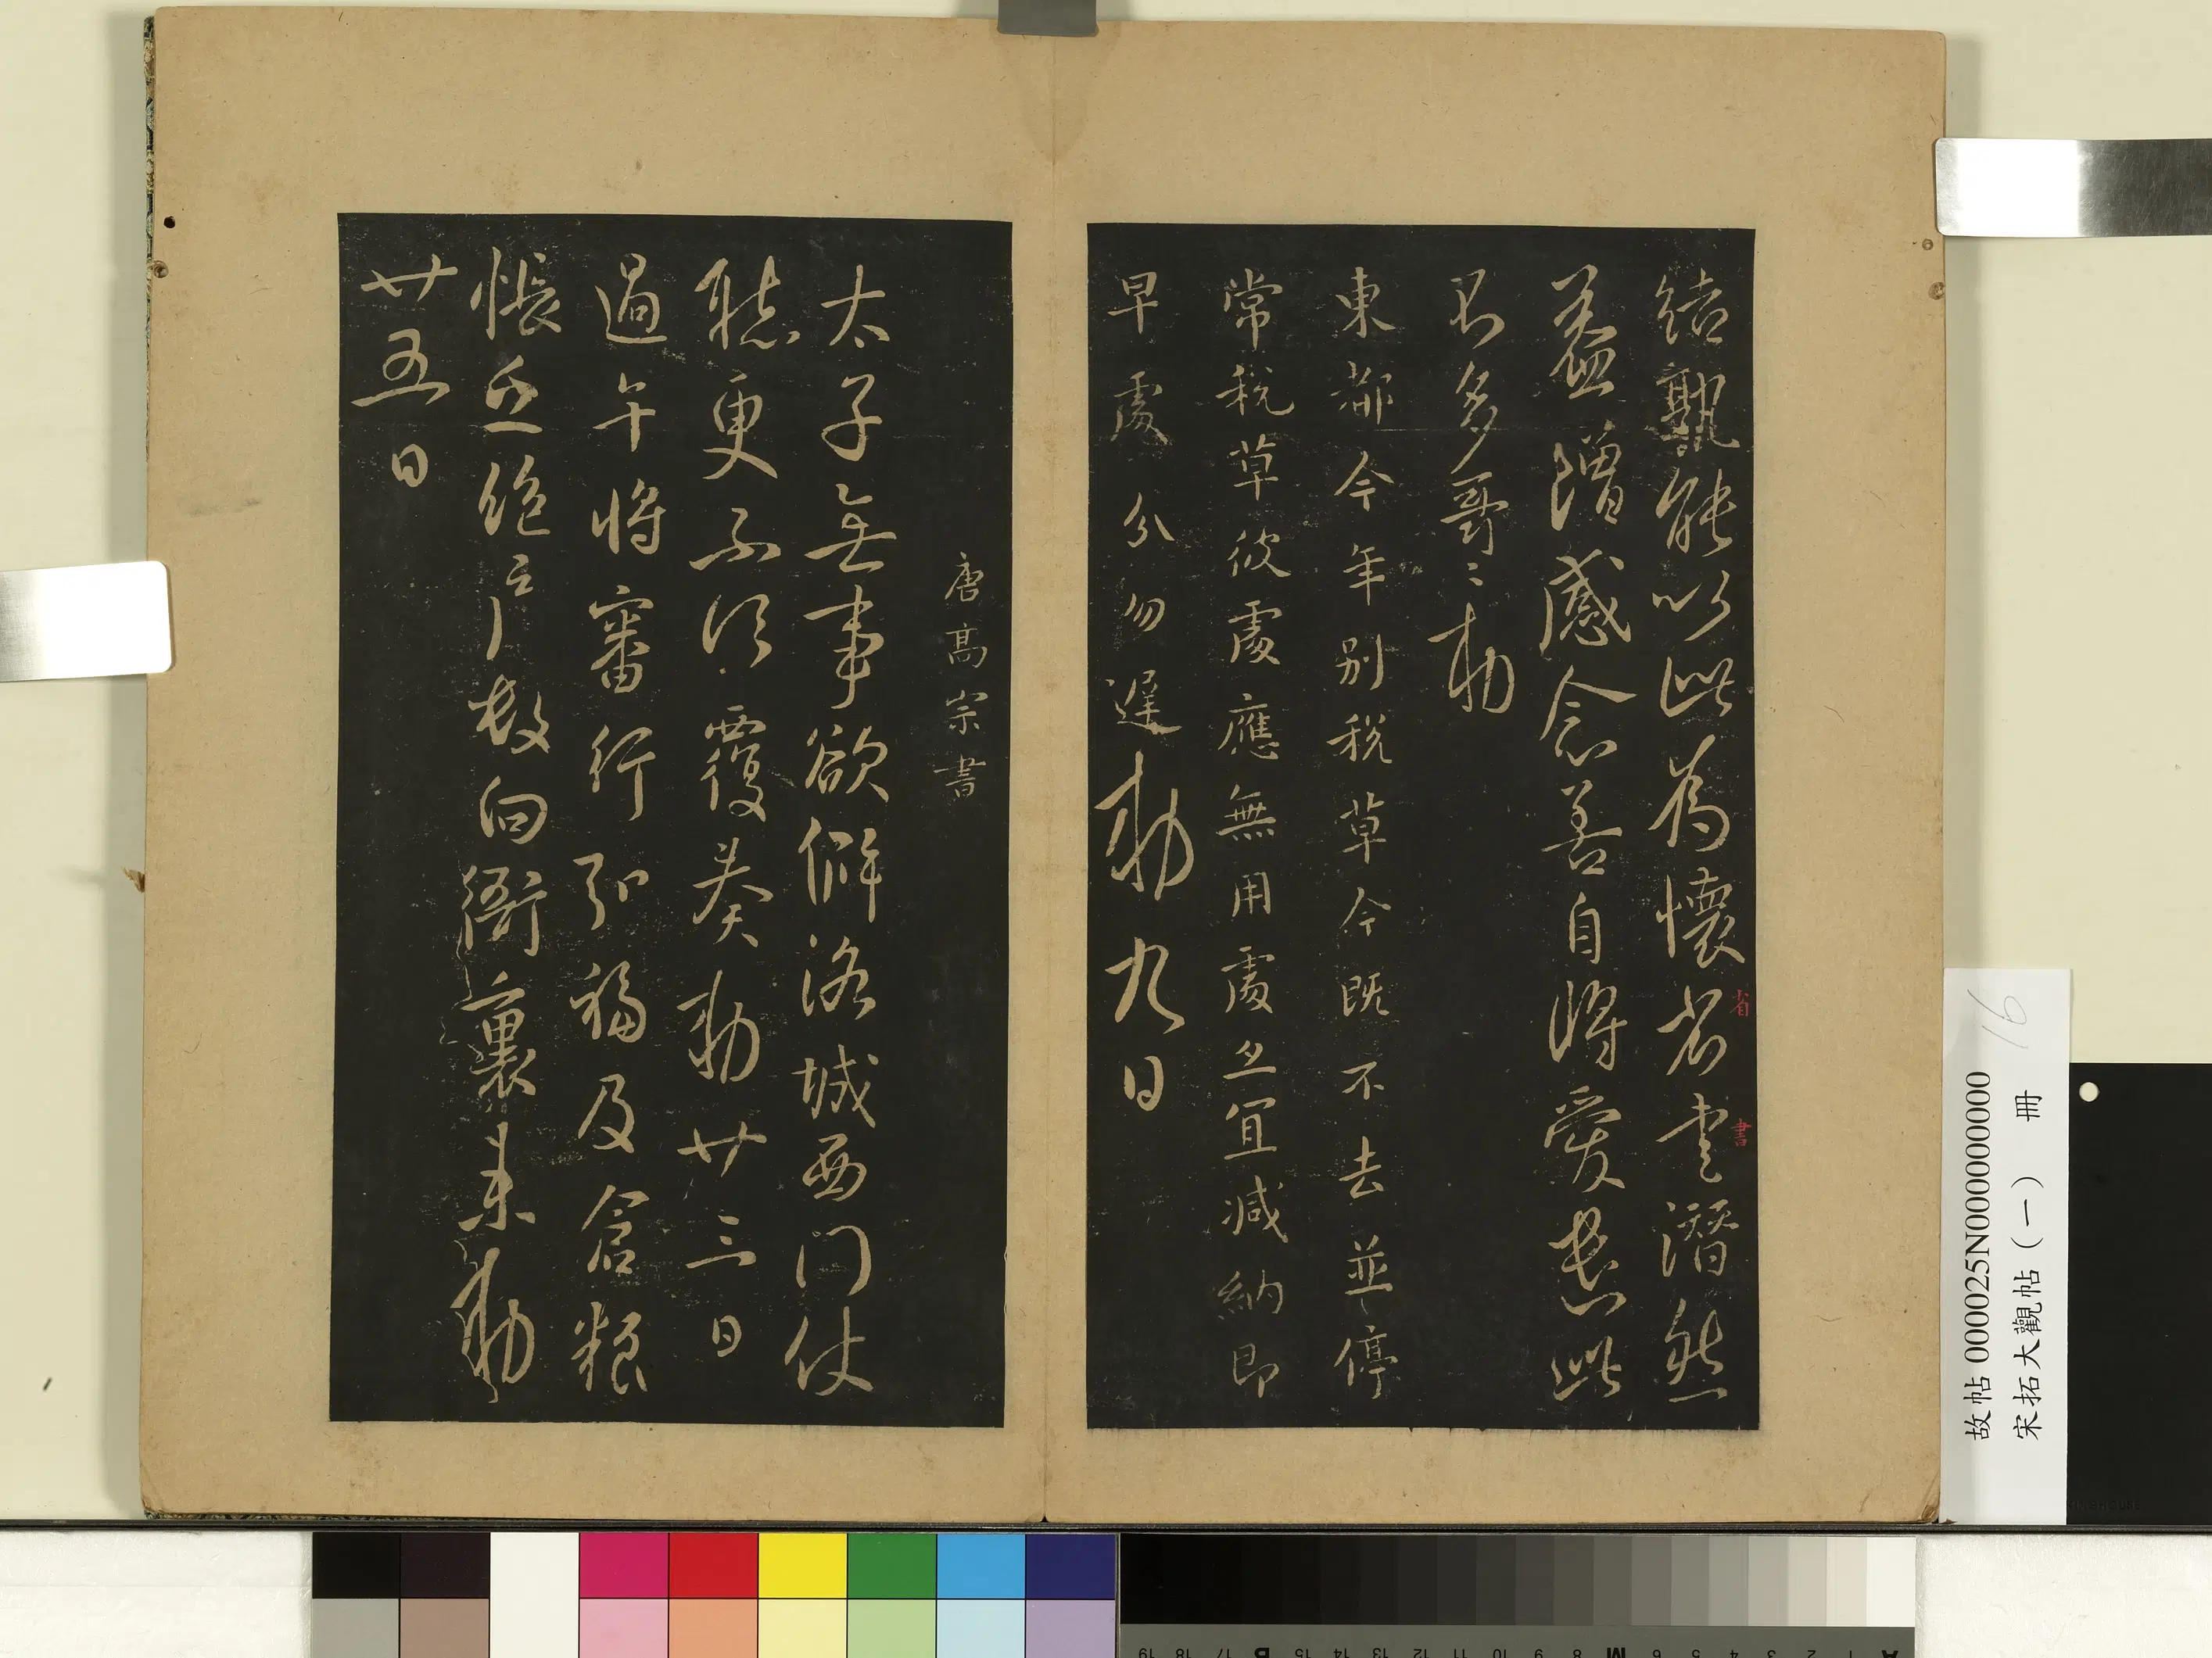 結孰能以此為懷省書潛然
省
書
益增感念善自將愛遣此
不多哥〻勅
東都今年別稅草今既不去並停
常稅草彼處應無用處亦宜減納即
早處分勿遲勅九日
唐高宗書
太子無事欲洛城西門仗
聽更不須覆奏勅廿三日
過午將審行弘福及倉粮
帳總戶數向衙裏來勅
廿五日
故帖 000025N000000000
宋拓大觀帖（一） 冊
16